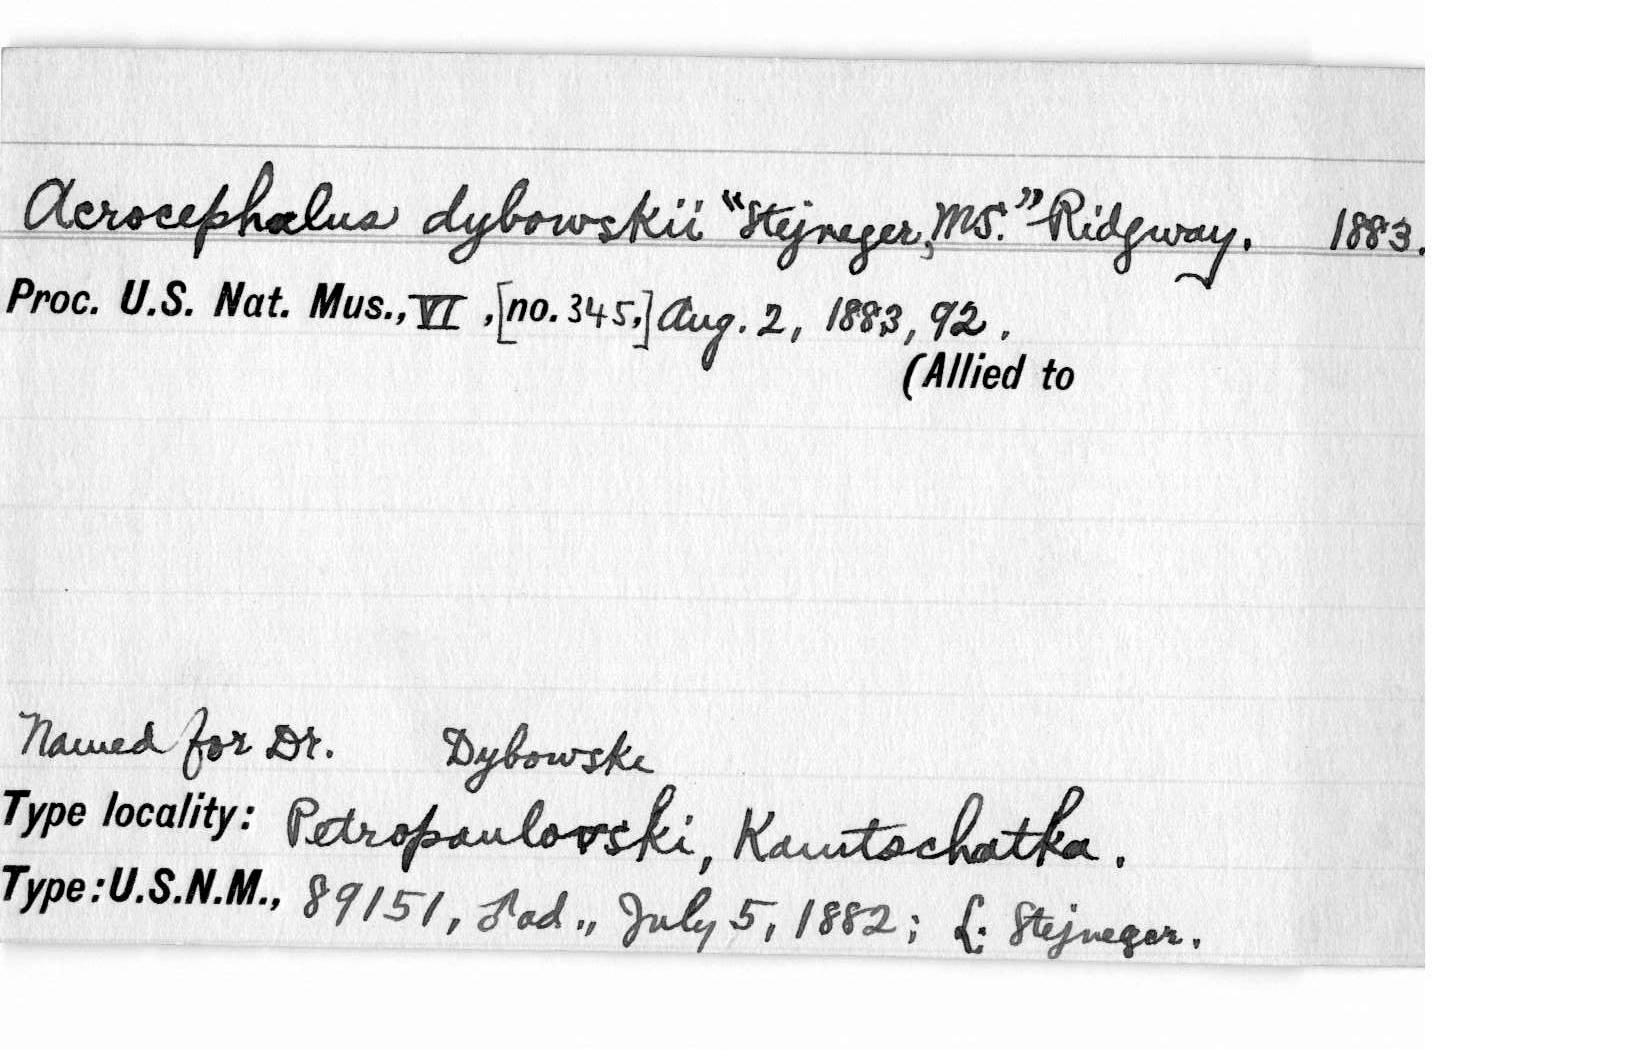 Acrocephalus dybowskii "Stejneger, MS." Ridgway. 1883.
Proc. U.S. Nat. Mus., VI, [no. 345,] Aug. 2, 1883, 92.
(Allied to
Named for Dr. Dybowski
Type locality: Petropaulovski, Kamtschatka.
Type: U.S.N.M., 89151, ♂ ad., July 5, 1882; L. Stejneger.